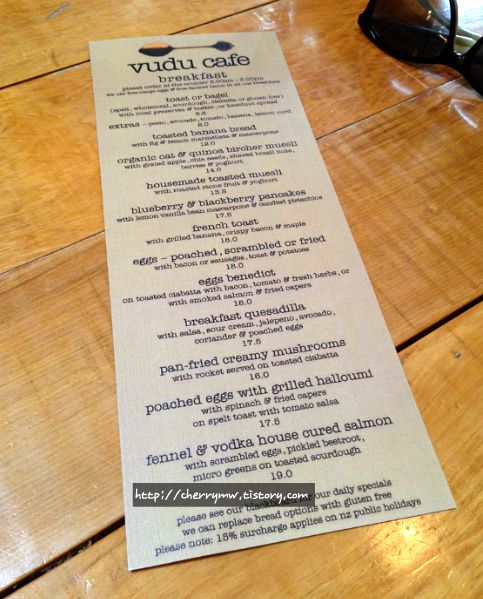 vudu cafe
breakfast
please order at the counter 8.00am - 5.00pm
we use free-range eggs & free-farmed bacon in all our breakfasts
toast or bagel
(spelt, wholemeal, sourdough, ciabatta or gluten free)
with local preserves & butter, or hazelnut spread
6.5
extras - pesto, avocado, tomato, banana, lemon curd
2.0
toasted banana bread
with fig & lemon marmellata & mascarpone
12.0
organic oat & quinoa bircher muesli
with grated apple, chia seeds, shaved brazil nuts,
berries & yoghurt
14.0
housemade toasted muesli
with roasted stone fruit & yoghurt
13.5
blueberry & blackberry pancakes
with lemon vanilla bean mascarpone & candied pistachios
17.5
french toast
with grilled banana, crispy bacon & maple
18.0
eggs - poached, scrambled or fried
with bacon or sausages, toast & potatoes
18.0
eggs benedict
on toasted ciabatta with bacon, tomato & fresh herbs, or
with smoked salmon & fried capers
18.0
breakfast quesadilla
with salsa, sour cream, jalepeno, avocado,
coriander & poached eggs
17.5
pan-fried creamy mushrooms
with rocket served on toasted ciabatta
16.0
poached eggs with grilled halloumi
with spinach & fried capers
on spelt toast with tomato salsa
17.5
fennel & vodka house cured salmon
with scrambled eggs, pickled beetroot,
micro greens on toasted sourdough
19.0
http://cherrymw.tistory.com
please see our blackboard for our daily specials
we can replace bread options with gluten free
please note: 15% surcharge applies on nz public holidays